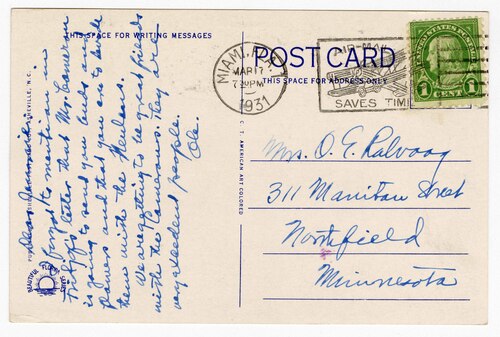 THIS SPACE FOR WRITING MESSAGES
POST CARD
THIS SPACE FOR ADDRESS ONLY
MIAMI, FLA.
MAR 17
730PM
1931
AIR-MAIL
SAVES TIME
UNITED STATES POSTAGE
1 CENT 1
Dear
I forgot to mention in
letter that Mrs. Cameron
is going to send you bulbs and
flowers and that you are to divide
them with the
We are getting to be great friends
with the Camerons. They are
very excellent people.
Ole.
Mrs. O. E. Rolvaag
311 Manitou Street
Northfield
Minnesota
C. T. AMERICAN ART COLORED
ASHEVILLE, N.C.